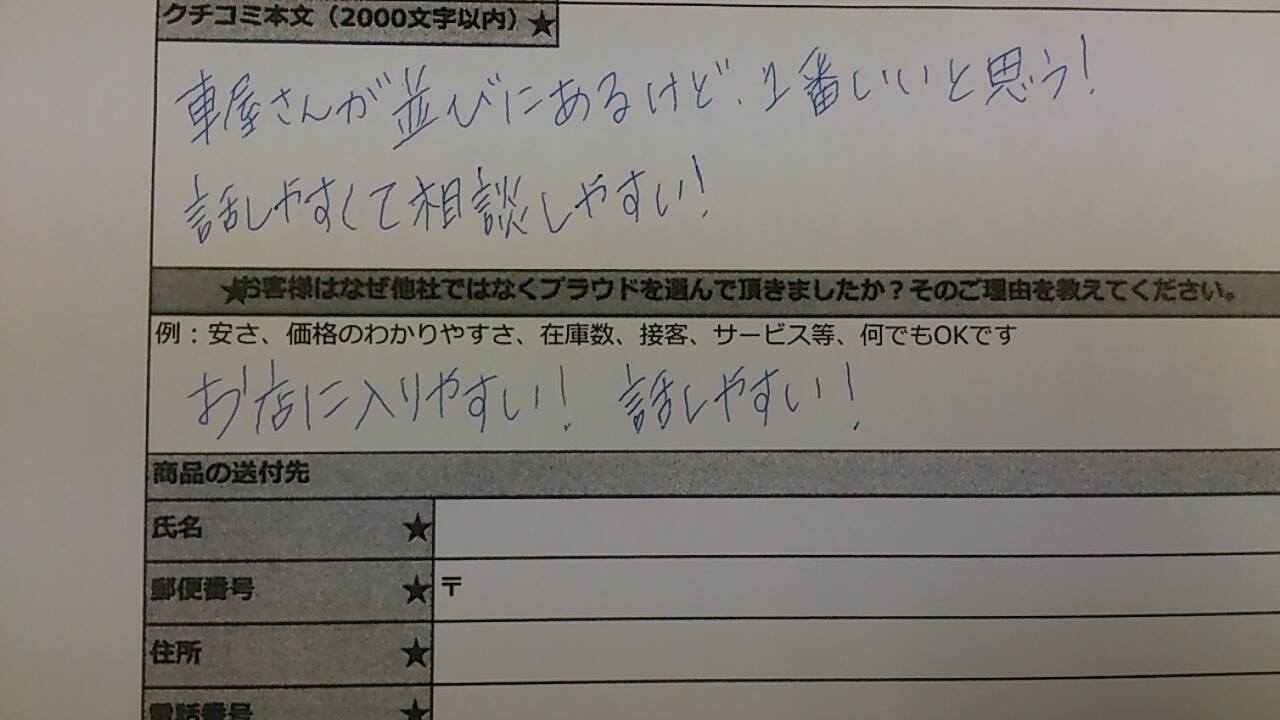 クチコミ本文（2000文字以内）★
車屋さんが並びにあるけど、1番いいと思う！
話しやすくて相談しやすい！
★お客様はなぜ他社ではなくプラウドを選んで頂きましたか？そのご理由を教えてください。
例：安さ、価格のわかりやすさ、在庫数、接客、サービス等、何でもOKです
お店に入りやすい！ 話しやすい！
商品の送付先
氏名 ★
郵便番号 ★ 〒
住所 ★
電話番号 ★